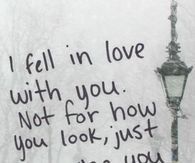 I fell in love
with you.
Not for how
you look, just
you